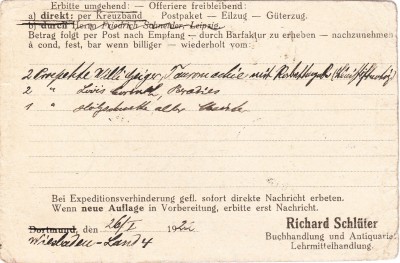 Erbitte umgehend: — Offeriere freibleibend:
a) direkt: per Kreuzband Postpaket — Eilzug — Güterzug.
b) durch Herrn Friedrich Schneider, Leipzig.
Betrag folgt per Post nach Empfang — durch Barfaktur zu erheben — nachzunehmen
à cond, fest, bar wenn billiger — wiederholt vom:
2 Prospekte mit
2 " Louis Corinth,
1 " Holzschnitte alter
Bei Expeditionsverhinderung gefl. sofort direkte Nachricht erbeten.
Wenn neue Auflage in Vorbereitung, erbitte erst Nachricht.
Richard Schlüter
Buchhandlung und Antiquariat
Lehrmittelhandlung.
Dortmund, den 26/I 192
Wiesbaden-Land 4